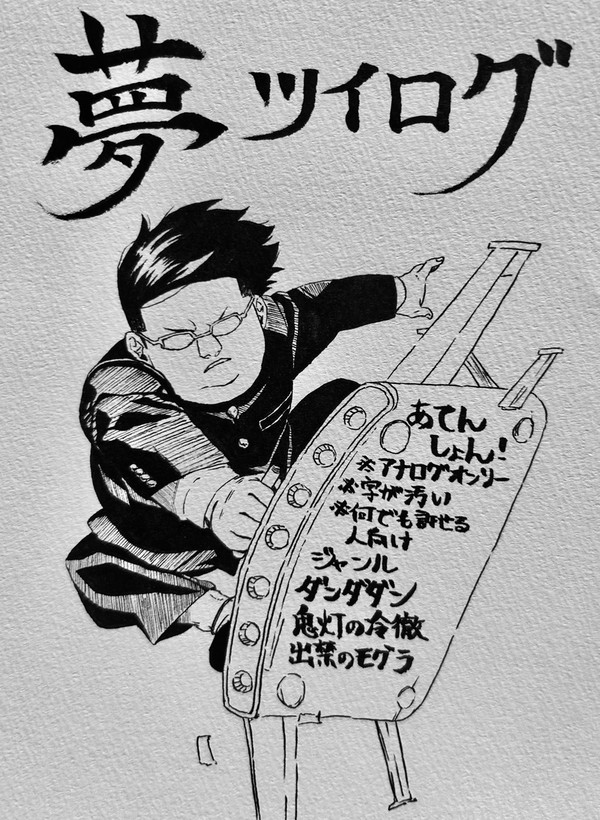 夢ツイログ
あてん
しょん!
※アナログオンリー
※字が汚い
※何でも許せる
人向け
ジャンル
ダンダダン
鬼灯の冷徹
出禁のモグラ